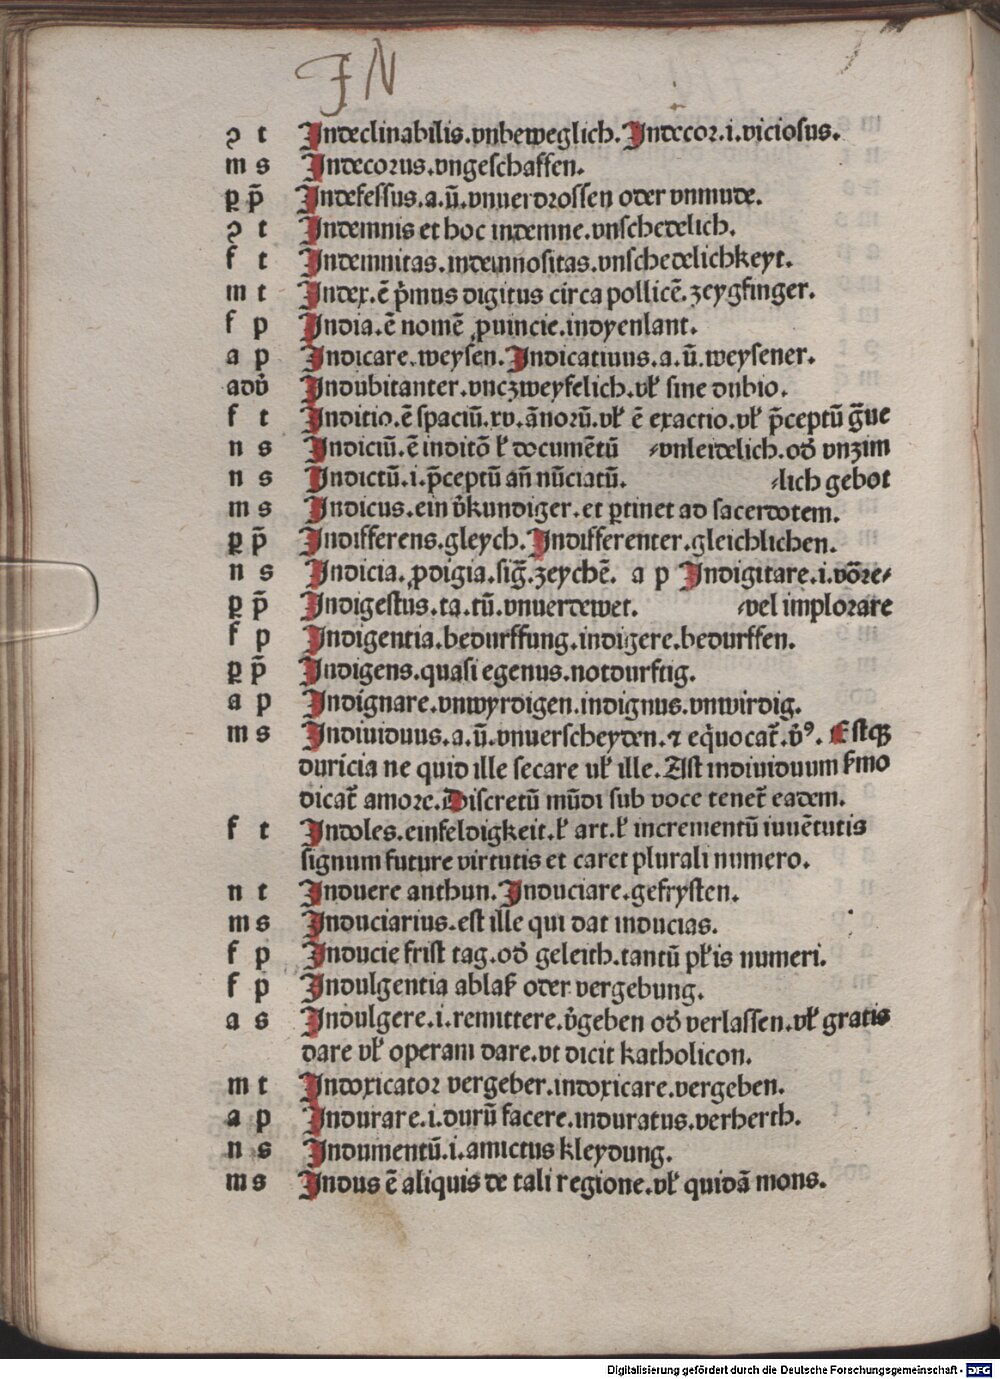 IN
ɔ t Indeclinabilis.vnbeweglich.Indecor.i.viciosus.
m s Indecorus.vngeschaffen.
ꝑ p̃ Indefessus.a.ũ.vnuerdrossen oder vnmude.
ɔ t Indemnis et hoc indemne.vnschedelich.
f t Indemnitas.indemnositas.vnschedelichkeyt.
m t Index.ē p̓mus digitus circa pollicē.zeygfinger.
f p India.ē nomē ꝓuincie.indyenlant.
a p Indicare.weysen.Indicatiuus.a.ũ.weysener.
adv̓ Indubitanter.vnczweyfelich.vꝉ sine dubio.
f t Inditio.ē spaciū.xv.ānorū.vꝉ ē exactio.vꝉ p̄ceptū g̃ue
n s Indiciū.ē inditō ꝉ documētū ⸗vnleidelich.od̓ vnzim
n s Indictū.i.p̄ceptū añ nūciatū. ⸗lich gebot
m s Indicus.ein v̓kundiger.et ꝑtinet ad sacerdotem.
ꝑ p̃ Indifferens.gleych.Indifferenter.gleichlichen.
n s Indicia.ꝓdigia.sig̃.zeychē. a p Indigitare.i.vōre⸗
ꝑ p̃ Indigestus.ta.tū.vnuerdewet. ⸗vel implorare
f p Indigentia.bedurffung.indigere.bedurffen.
ꝑ p̃ Indigens.quasi egenus.notdurftig.
a p Indignare.vnwyrdigen.indignus.vnwirdig.
m s Indiuiduus.a.ũ.vnuerscheyden.⁊ eq̓uocat̃.v̓ꝰ. Estqꝫ
duricia ne quid ille secare vꝉ ille.Ast indiuiduum ẜmo
dicat̃ amore.Discretū mūdi sub voce tenet̃ eadem.
f t Indoles.einfeldigkeit.ꝉ art.ꝉ incrementū iuuētutis
signum future virtutis et caret plurali numero.
n t Induere anthun.Induciare.gefrysten.
m s Induciarius.est ille qui dat inducias.
f p Inducie frist tag.od̓ geleith.tantū pꝉis numeri.
f p Indulgentia ablaß oder vergebung.
a s Indulgere.i.remittere.v̓geben od̓ verlassen.vꝉ gratis
dare vꝉ operam dare.vt dicit katholicon.
m t Indoxicator vergeber.indoxicare.vergeben.
a p Indurare.i.durū facere.induratus.verherth.
n s Indumentū.i.amictus kleydung.
m s Indus ē aliquis de tali regione.vꝉ quidā mons.
Digitalisierung gefördert durch die Deutsche Forschungsgemeinschaft - DFG